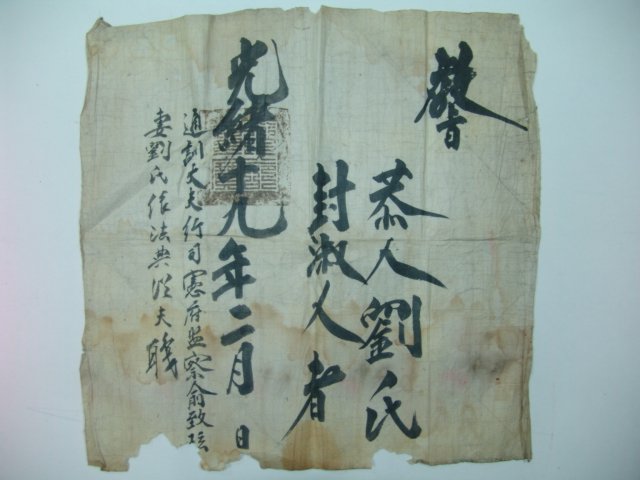 敎旨
恭人劉氏
封淑人者
光緖十九年二月 日
通訓大夫行司憲府監察俞致
妻劉氏依法典從夫職